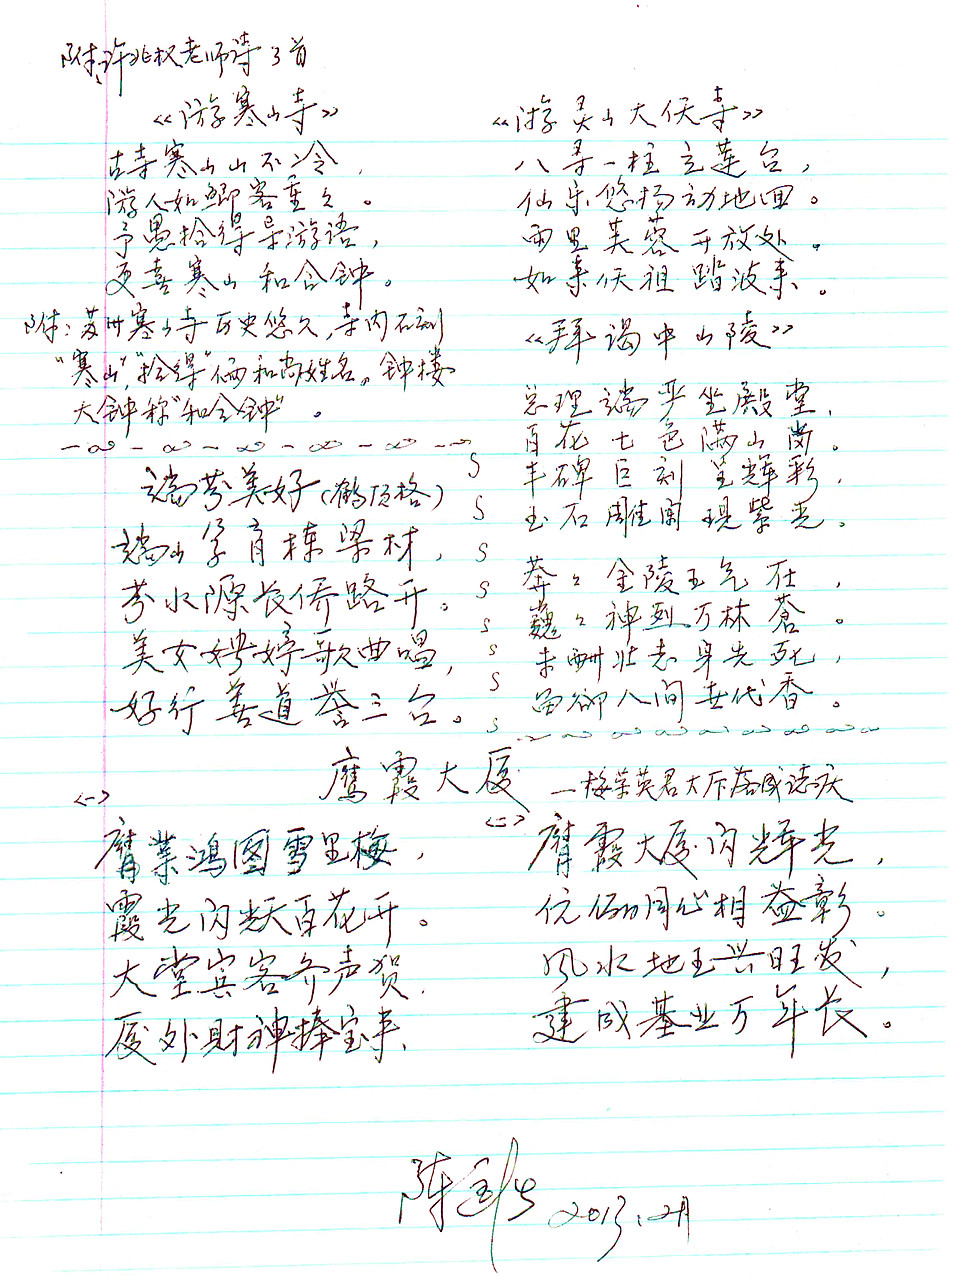 附:许兆权老师诗3首
《游寒山寺》
古寺寒山山不冷,
游人如鲫客重々。
予愚拾得导游语,
更喜寒山和合钟。
附:苏州寒山寺历史悠久,寺内石刻
"寒山","拾得"俩和尚姓名。钟楼
大钟称"和合钟"。
《游灵山大佛寺》
八寻一柱立莲台,
仙乐悠扬动地回。
两里芙蓉开放处。
如来佛祖踏波来。
《拜谒中山陵》
总理端严坐殿堂,
百花七色满山岗。
丰碑巨刻呈辉彩,
玉石雕阑现紫光。
莽々金陵王气在,
巍々神烈万林苍。
未酬壮志身先死,
留御人间世代香。
端芬美好(鹤顶格)
端山孕育栋梁材,
芬水源长侨路开。
美女娉婷歌曲唱,
好行善道誉三台。
鹰霞大厦
一梅荣英君大厦落成誌庆
<一>
膺业鸿图雪里梅,
霞光闪耀百花开。
大堂宾客齐声贺.
厦外财神捧宝来、
<二>
膺霞大厦闪辉光,
伉俪同心相益彰。
风水地王兴旺发,
建成基业万年长。
2013.2月